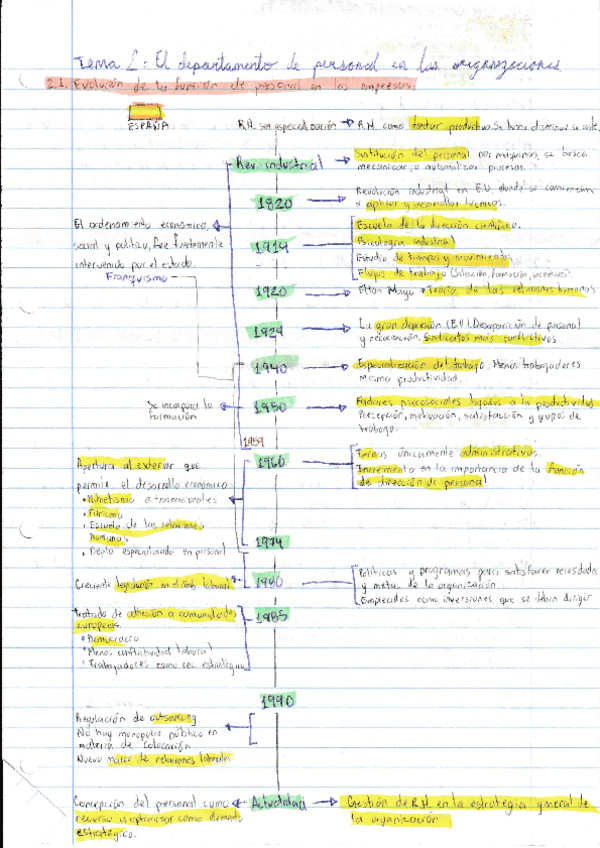 Tema 2: El departamento de personal en las organizaciones
2.1. Evolución de la función de personal en las empresas
ESPAÑA
R.H. sin especialización → R.H. como factor productivo. Se busca disminuir su coste.
Rev. industrial → Sustitución del personal por máquinas, se busca
mecanizar, o automatizar procesos.
1820 → Revolución industrial en E.U, donde se comienzan
a aplicar y desarrollar técnicas.
El ordenamiento económico,
social y político, fue fuertemente
intervenido por el estado.
Franquismo
1914
Escuela de la dirección científica.
Psicología industrial
Estudio de tiempos y movimientos
Etapas de trabajo (Selección, formación, incentivos)
1920 → Elton Mayo → Teoría de las relaciones humanas
1929 → La gran depresión (E.U). Desaparición de personal
y negociación. Sindicatos más conflictivos
1940 → Especialización del trabajo. Menos trabajadores
misma productividad.
Se incorpora la
formación
1950 → Factores psicosociales ligados a la productividad
Percepción, motivación, satisfacción y grupos de
trabajo.
1959
1960
Tareas únicamente administrativas.
Incremento en la importancia de la función
de dirección de personal
Apertura al exterior que
permite el desarrollo económico
• Mimetismo a trasnacionales
• Turismo
• Escuela de las relaciones
humanas
• Depto especializado en personal
1974
Creciente legislación en ámb. laboral
1980
Políticas y programas para satisfacer necesidades
y metas de la organización.
Empleados como inversiones que se deben dirigir
Tratado de adhesión a comunidades
europeas.
• Democracia
• Menos conflictividad laboral
• Trabajadores como rec. estratégico
1985
1990
Regulación de outsourcing.
No hay monopolio público en
materia de colocación
Nuevo marco de relaciones laborales
Concepción del personal como
recurso a optimizar como elemento
estratégico.
Actualidad → Gestión de R.H. en la estrategia general de
la organización